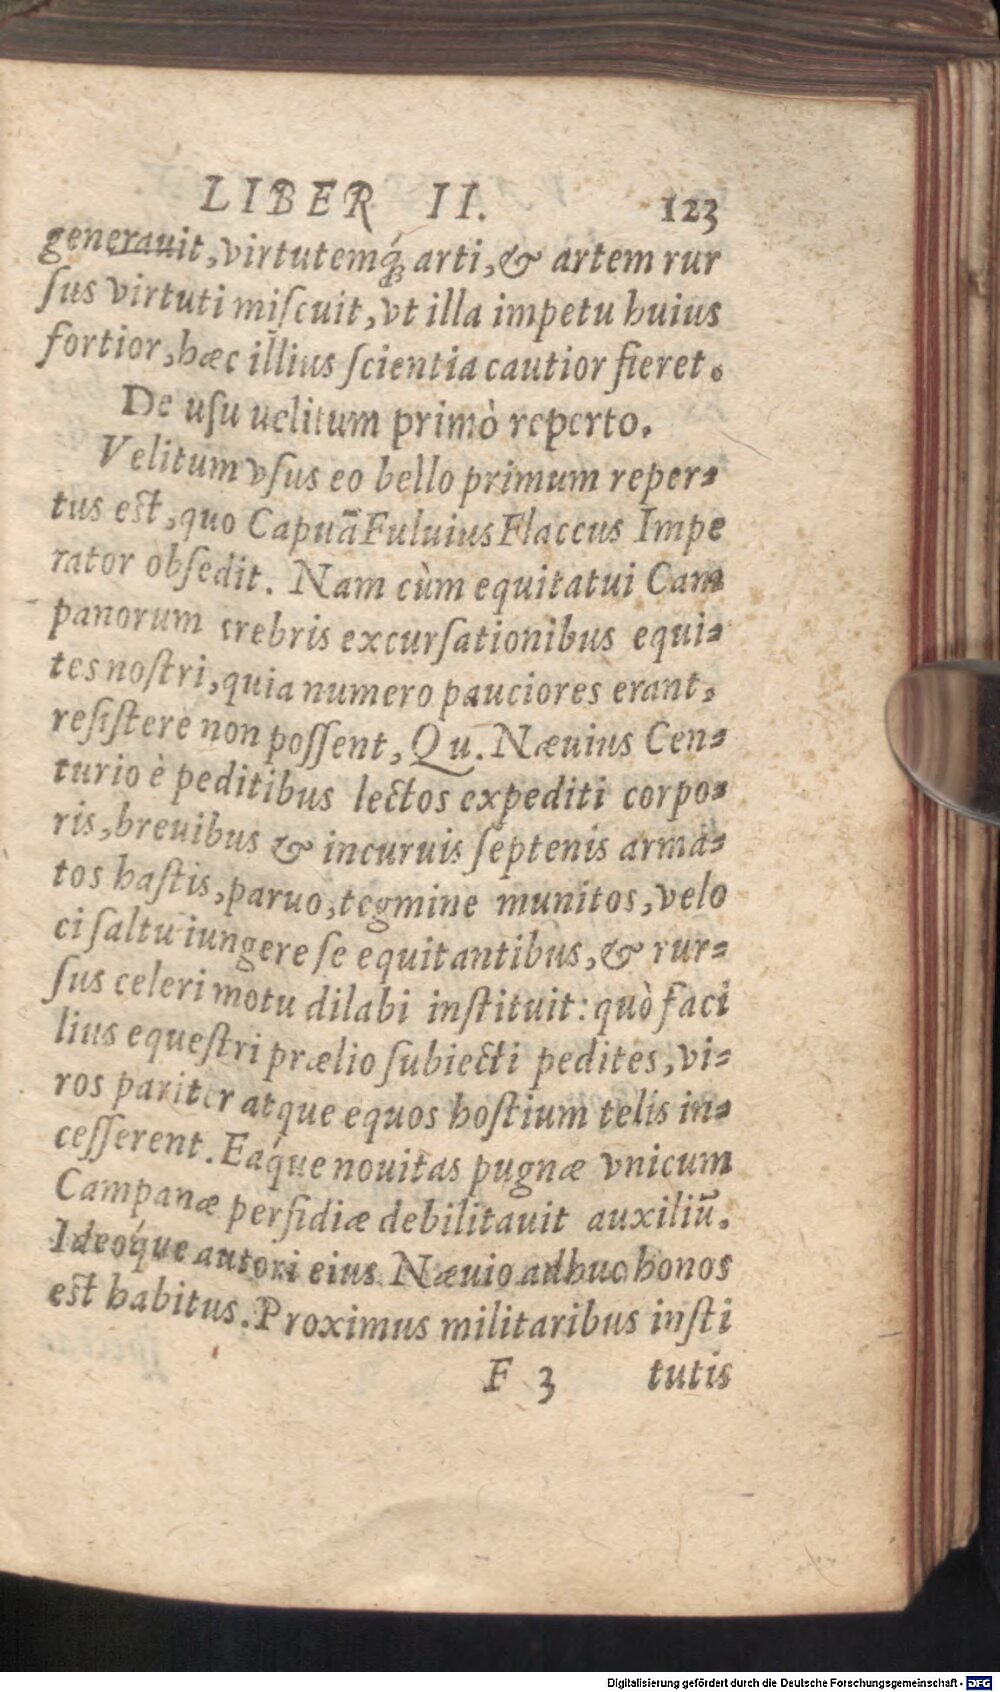 LIBER II. 123
generauit, virtutemq́; arti, & artem rur
ſus virtuti miſcuit, vt illa impetu huius
fortior, hæc illius ſcientia cautior fieret.
De uſu uelitum primò reperto.
Velitum vſus eo bello primum reper-
tus est, quo Capuã Fuluius Flaccus Impe
rator obſedit. Nam cùm equitatui Cam
panorum crebris excurſationibus equi-
tes noſtri, quia numero pauciores erant,
reſiſtere non poſſent, Qu. Næuius Cen-
turio è peditibus lectos expediti corpo-
ris, breuibus & incuruis ſeptenis arma-
tos haſtis, paruo, tegmine munitos, velo
ci ſaltu iungere ſe equitantibus, & rur-
ſus celeri motu dilabi inſtituit: quò faci
lius equeſtri prælio ſubiecti pedites, vi-
ros pariter atque equos hoſtium telis in-
ceſſerent. Eáque nouitas pugnæ vnicum
Campanæ perfidiæ debilitauit auxiliũ.
Ideóque autori eius Næuio adhuc honos
est habitus. Proximus militaribus inſti
F 3 tutis
Digitalisierung gefördert durch die Deutsche Forschungsgemeinschaft - DFG